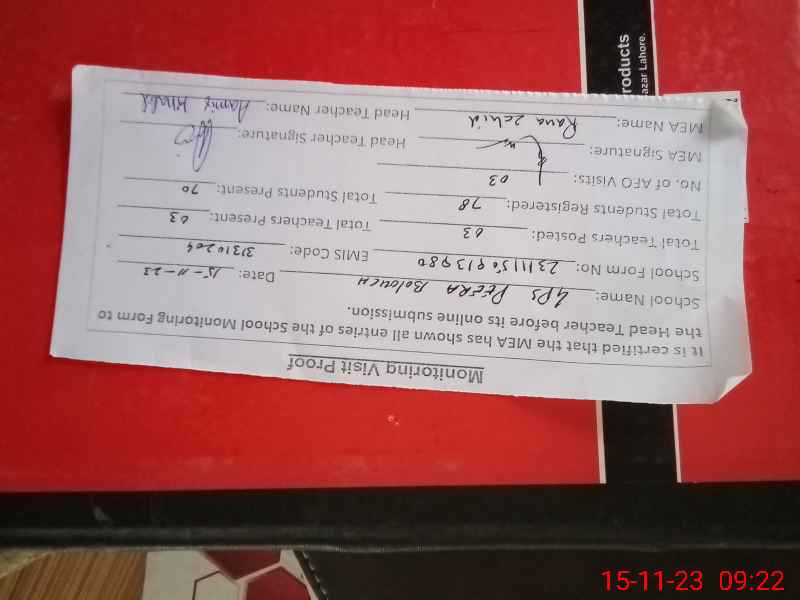 Monitoring Visit Proof
It is certified that the MEA has shown all entries of the School Monitoring Form to
the Head Teacher before its online submission.
School Name: GPS PEERA Balouch Date: 15-11-23
School Form No: EMIS Code: 31310204
Total Teachers Posted: 03 Total Teachers Present: 03
Total Students Registered: 78 Total Students Present: 70
No. of AFO Visits: 03
MEA Signature: Head Teacher Signature:
MEA Name: Rana Head Teacher Name:
roducts
azar Lahore.
15-11-23 09:22